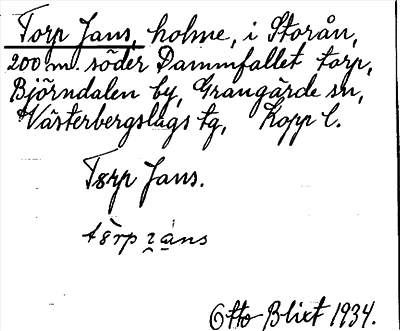 Torp Jans, holme, i Storån,
200 m. söder Dammfallet torp,
Björndalen by, Grangärde sn,
Västerbergslags tg, Kopp l.
Torp Jans.
Otto Blixt 1934.